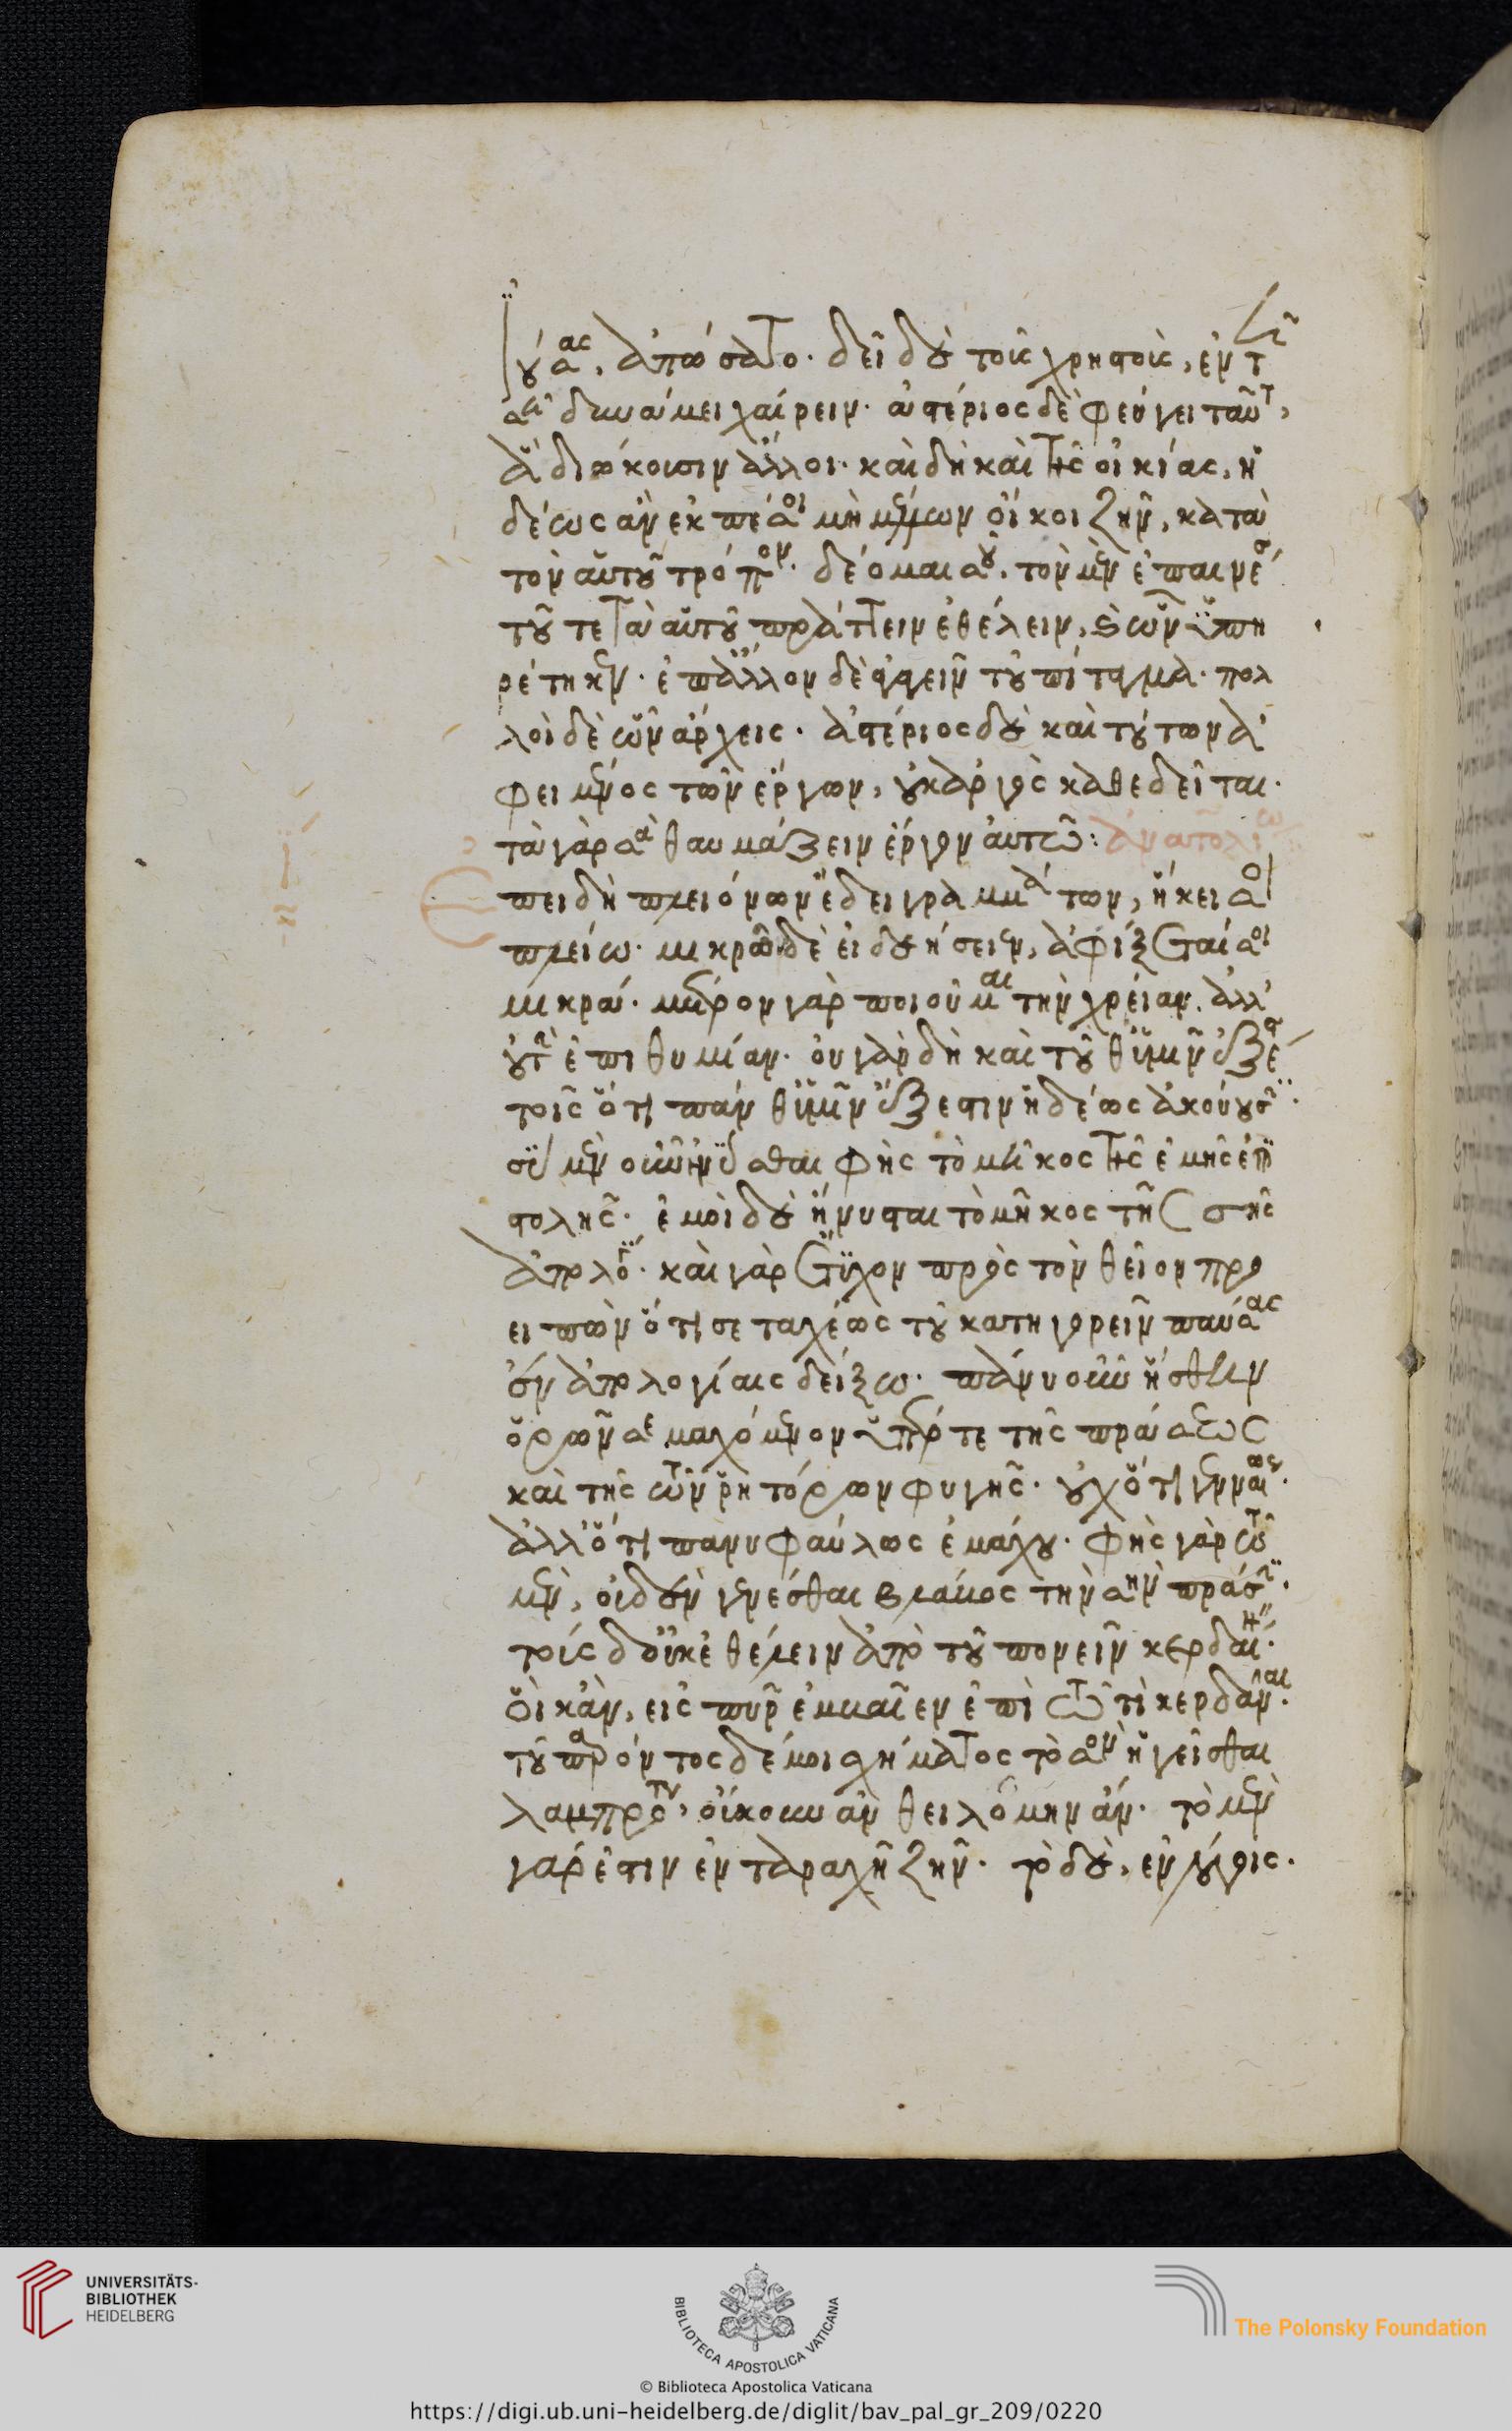 ούσας, ἀπώσατο. δεῖ δὲ τοῖς χρηστοῖς, ἐν τῇ
σῇ δυνάμει χαίρειν. ἀστέριος δὲ φεύγει ταῦτ,
ἃ διώκουσιν ἄλλοι. καὶ δὴ καὶ τῆς οἰκίας, ἡ
δέως ἂν ἐκπέσοι μὴ οἴκοι ζῆν, κατὰ
τὸν αὑτοῦ τρόπον. δέομαί σου, τὸν μὲν ἐπαινέσ
τοῦ τε τὰ αὑτοῦ πράττειν ἐθέλειν, καὶ ὧν ὑπη
ρέτηκεν. ἐπ ἄλλον δὲ τοὐπίταγμα. πολ
λοὶ δὲ ὧν ἄρχεις. ἀστέριος δὲ καὶ τούτων ἀ
φειμένος τῶν ἔργων, οὐκ ἀργὸς καθεδεῖται.
τὰ γὰρ σὰ θαυμάζειν ἔργον αὐτῶ: ἀνατολίω
Ἐπειδὴ πλειόνων ἔδει γραμμάτων, ἥκει σοι
πλείω. μικρῶν δὲ εἰ δεήσειεν, ἀφίξεταί σοι
μικρά. μέτρον γὰρ ποιοῦμαι τὴν χρείαν. ἀλλ'
οὔτ ἐπιθυμίαν. οὐ γὰρ δὴ καὶ τοῦθ ἡμῖν ἔξεστ
τοῖς ὅτι πᾶν θ ἡμῖν ἔξεστιν ἡδέως ἀκούουσι.
σοὶ μὲν οὖν ἡνῦσθαι φῂς τὸ μῆκος τῆς ἐμῆς ἐπι
στολῆς. ἐμοὶ δὲ ἤνυσται τὸ μῆκος τῆς σῆς
καὶ γὰρ ἔτυχον πρὸς τὸν θεῖον προ
ειπὼν ὅτι σε ταχέως τοῦ κατηγορεῖν παύσας
ἐν ἀπολογίαις δείξω. πάνυ οὖν ἥσθην
ὁρῶν σε μαχόμενον ὑπέρ τε τῆς πράξεως
καὶ τῆς τῶν ῥητόρων φυγῆς. οὐχ ὅτι γενναίως.
ἀλλ ὅτι πάνυ φαύλως ἐμάχου. φῂς γὰρ τῶ
μὲν, οὐδὲν γενέσθαι βλάβος τὴν σὴν πρᾶξιν.
τοῖς δ οὐκ ἐθέλειν ἀπὸ τοῦ πονεῖν κερδαίνειν.
οἳ κἂν, εἰς πῦρ ἐμβαῖεν ἐπὶ τῶ τὶ κερδᾶναι.
τοῦ παρόντος δέ μοι σχήματος τὸ σὸν ἡγεῖσθαι
λαμπρότ, οὔκουν ἂν θειλόμην ἄν. τὸ μὲν
γάρ ἐστιν ἐν ταραχῆ ζῆν. τὸ δὲ, ἐν λόγοις.
UNIVERSITÄTS-
BIBLIOTHEK
HEIDELBERG
BIBLIOTECA APOSTOLICA VATICANA
The Polonsky Foundation
© Biblioteca Apostolica Vaticana
https://digi.ub.uni-heidelberg.de/diglit/bav_pal_gr_209/0220